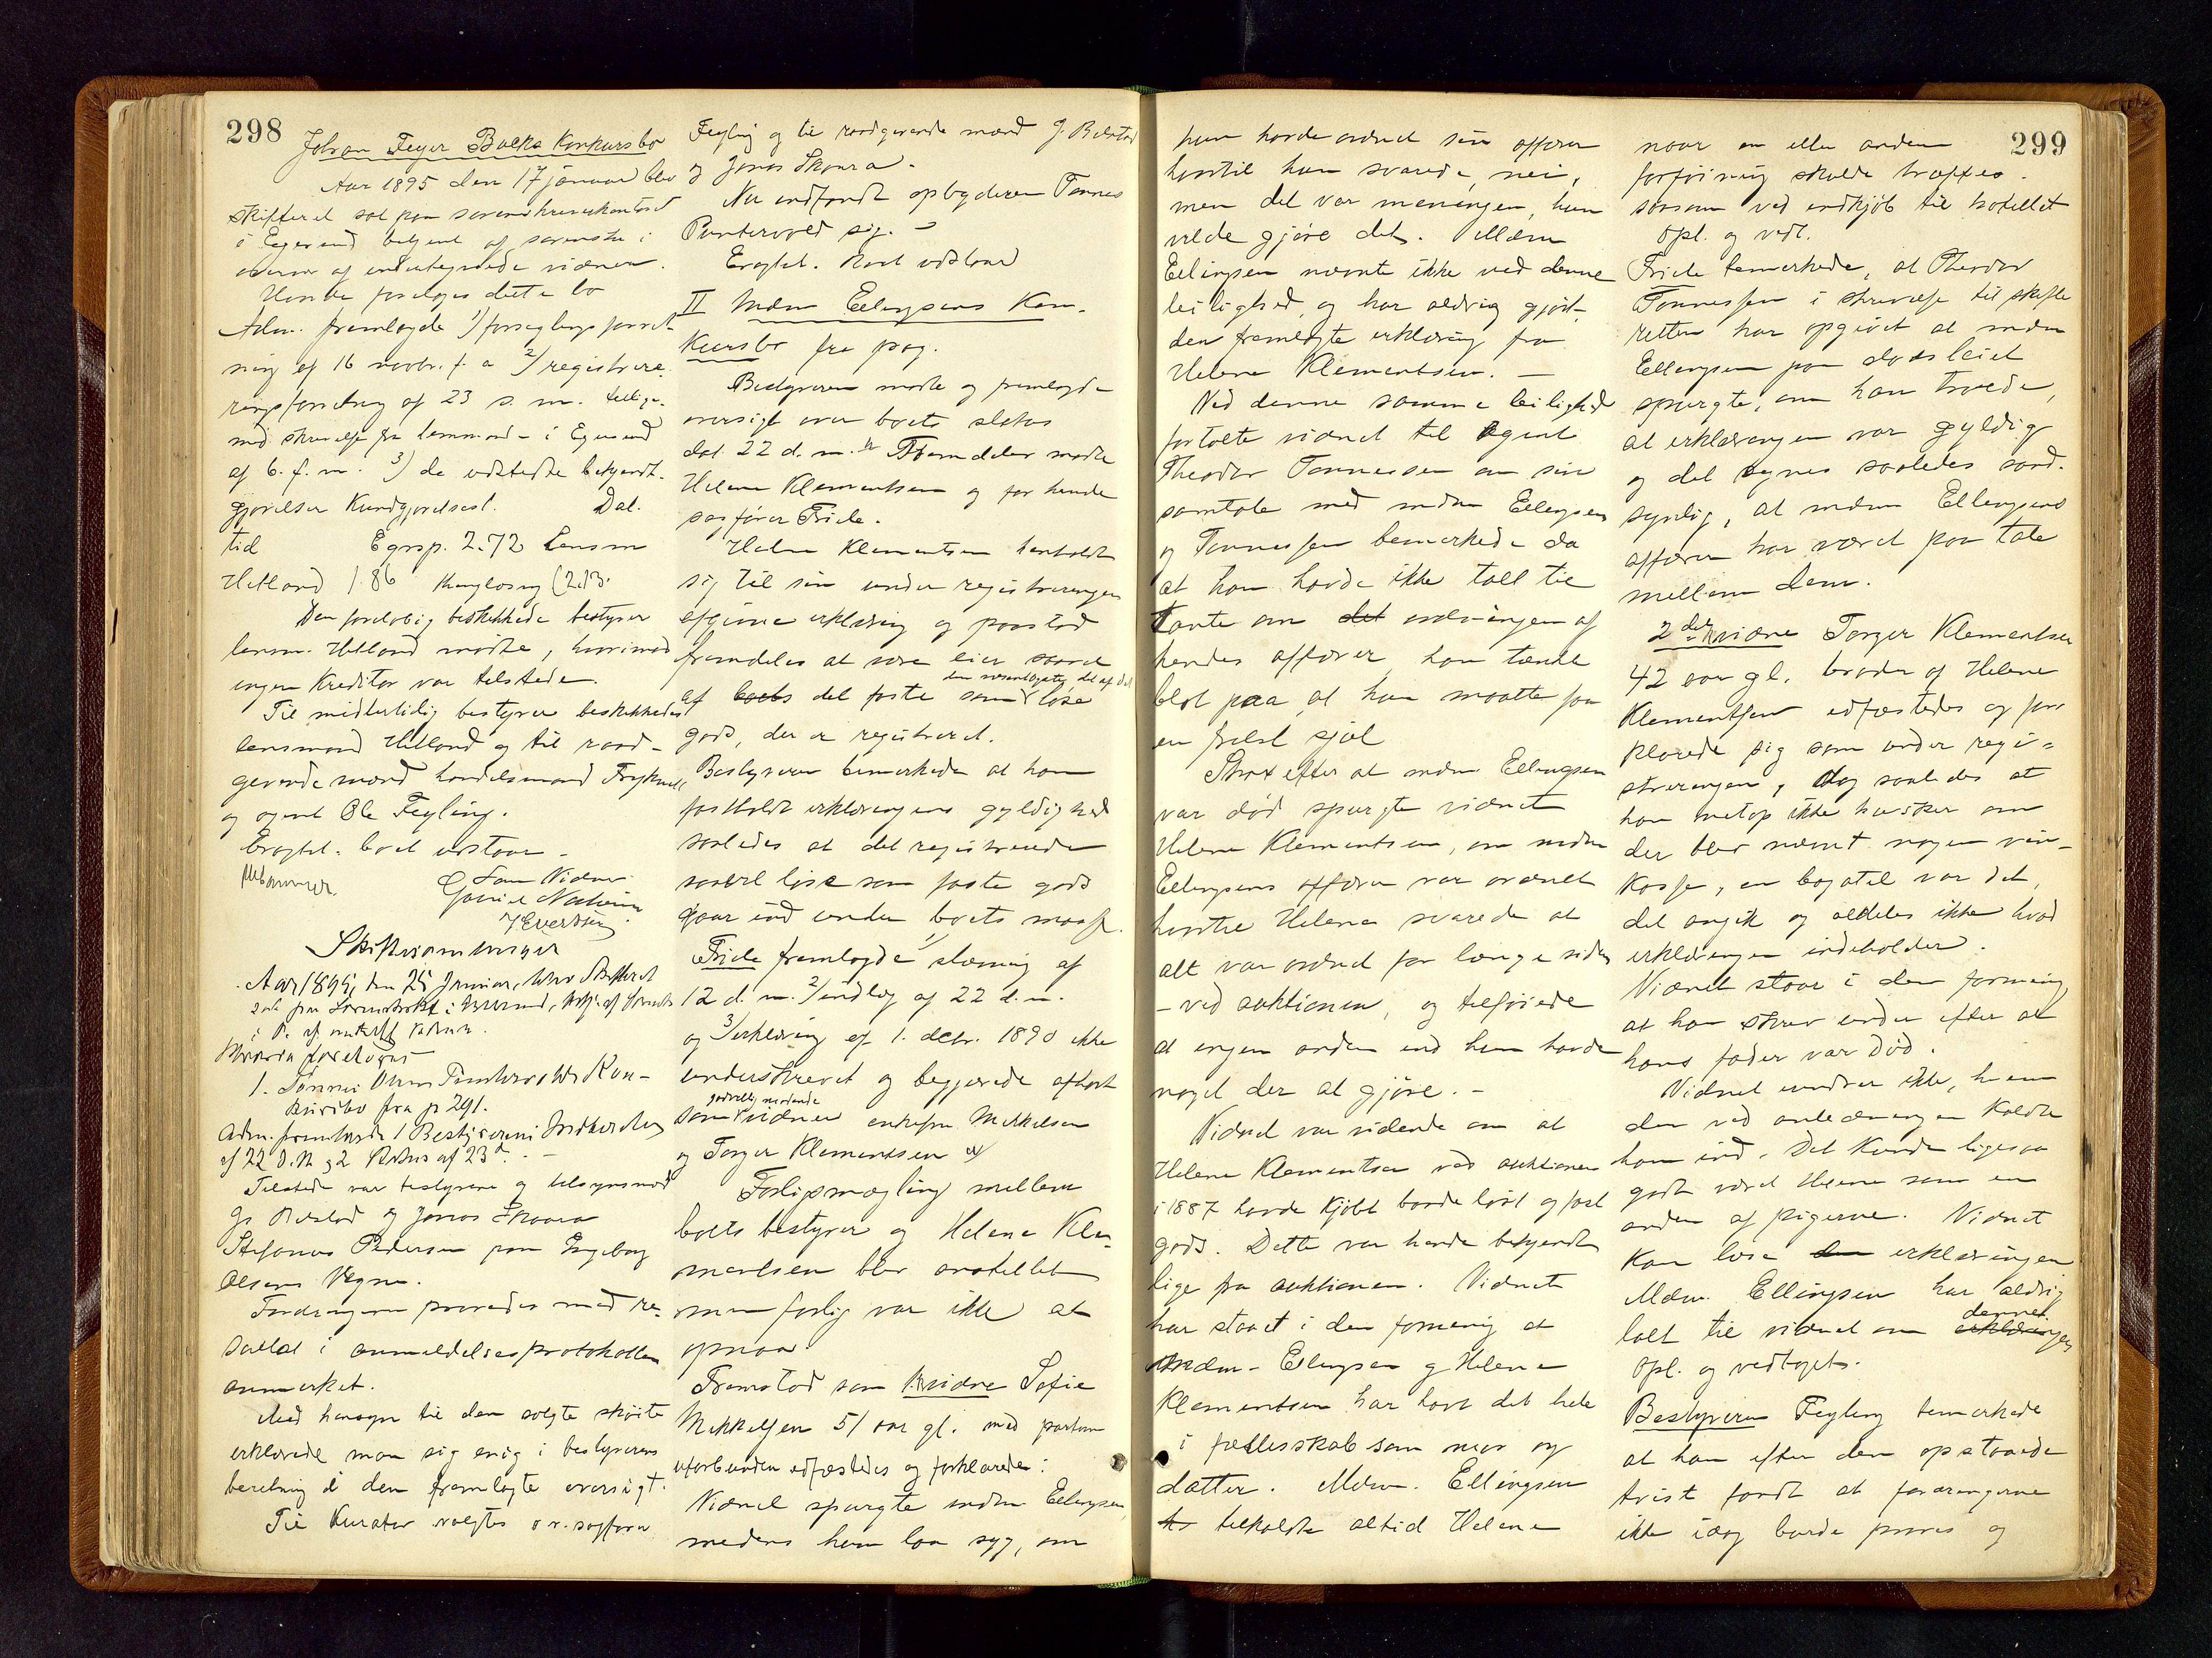 298
Johan Feyer Balks Konkursbo
Aar 1895 den 17 januar blev
skifteret sat paa sorenskriverkontoret
i Egersund betjent af sorenskr. i
overvær af undertegnede vidner.
Hvorda foretoges dette bo
Adm. fremlagde 1) forseglingsforret-
ning af 16 novbr. f. a 2) registrere-
ringsforretning af 23 s. m. tillige-
med skrivelse fra lensmand i Egersund
af 6. f. m. 3) de udstedte bekjendt-
gjørelser Kundgjørelsest. Dal.
tid Egrsp. 2.72 Lensm
Hetland 1.86
Den foreløbig beskikkede bestyrer
lensm. Hetland mødte, hvorimod
ingen Kreditor var tilstede.
Til midlertidig bestyrer beskikkedes
lensmand Hetland og til raad-
givende mænd handelsmand
og agent Ole Feyling.
Eragtet. boet udstaar -
Som Vidner

J Evertsen
Skiftesamlinger
Aar 1895, den 25 Januar, blev Skifteret
sat paa Sorenskrkt. i Egersund,
i O. af undertegn. vidner.
Hvorda foretoges
1. Tønnes Olsen Puntervolds Kon-
kursbo fra p 291.
Adm. fremlagde 1 Bestyrerens Indberetning
af 22 d. M. og 2 Status af 23 d. -
Tilstede var bestyreren og tilsynsmæd
G. Bilstad og Jonas Skaara
Stefanus Pedersen paa Ingeborg
Olsens Vegne.
Fordringerne prøvedes med re-
sultat i anmeldelsesprotokollen
anmerket.
Med hensyn til den solgte skøite
erklærede man sig enig i bestyrerens
beretning i den fremlagte oversigt.
Til Kurator valgtes o.r.sagfører
Feyling og til raadgivende mænd G. Bilstad
og Jonas Skaara.
Nu indfandt opbyderen Tønnes
Puntervold sig. -
Eragtet. Boet udstaar
II Mdm Ellingsens Kon-
kursbo fra pag.
Bestyreren mødte og fremlagde
oversigt over boets status
dat. 22 d. m. Fremdeles mødte
Helene Klementsen og for hende
sagfører Friele.
Helene Klementsen henholdt
sig til sin under registreringen
afgivne erklæring og paastod
fremdeles at være eier saavel
den væsentligste del af det
af boets det faste som løse
gods, der er registreret.
Bestyreren bemerkede at han
fastholdt erklæringens gyldighed
saaledes at det registrerede
saavel løse som faste gods
gaar ind under boets masse.
Friele fremlagde 1) stævning af
12 d. m. 2) indlæg af 22 d. m.
og 3) erklæring af 1. decbr. 1890 ikke
underskrevet og begjærede afhørt
godvillig mødende
som vidner Mikkelsen
og Torger Klementsen
Forligsmægling mellem
boets bestyrer og Helene Kle-
mentsen blev anstillet
men forlig var ikke at
opnaa.
Fremstod som 1. vidne Sofie
Mikkelsen 51 aar gl. med parterne
uforbunden edfæstedes og forklarede:
Vidnet spurgte mdm Ellingsen,
medens hun laa syg, om
299
hun havde ordnet sin affærer
hvortil hun svarede, nei,
men det var meningen, hun
vilde gjøre det. Mdm
Ellingsen nævnte ikke ved denne
leilighed, og har aldrig gjørt
den fremlagte erklæring fra
Helene Klementsen. -
Ved denne samme leilighed
fortalte vidnet til Agent
Theodor Tønnessen om sin
samtale med mdm Ellingsen
og Tønnessen bemerkede da
at han havde ikke talt til
tante om det ordningen af
hendes affærer, han tænkte
blot paa, at hun maatte faa
en frelst sjæl
Strax efter at mdm Ellingsen
var død spurgte vidnet
Helene Klementsen, om mdm
Ellingsens affærer var ordnet
hvortil Helene svarede at
alt var ordnet for længe siden
- ved auktionen, og tilføiede
at ingen anden end hun havde
noget der at gjøre. -
Vidnet var vidende om at
Helene Klementsen ved auktionen
i 1887 havde kjøbt baade løst og fast
gods. Dette var hende bekjendt
lige fra auktionen. Vidnet
har staaet i den formening at
Mdm Ellingsen og Helene
Klementsen har havt det hele
i fællesskab som mor og
datter. Mdm. Ellingsen
tilkaldte altid Helene
naar en eller anden
forføining skulde træffes.
saasom ved indkjøb til hotellet
Opl. og vedt.
Friele bemerkede, at Theodor
Tønnessen i skrivelse til skifte
retten har opgivet at mdm
Ellingsen paa dødsleiet
spurgte, om han troede,
at erklæringen var gyldig
og det synes saaledes sand-
synlig, at mdm Ellingsens
affærer har været paa tale
mellem dem.
2det vidne Torger Klementsen
42 aar gl. broder af Helene
Klementsen edfæstedes og for-
klarede sig som under regi-
streringen, dog saaledes at
han netop ikke husker om
der blev nævnt nogen vin-
kasse, en bagatel var det,
det angik og aldeles ikke hvad
erklæringen indeholder.
Vidnet staar i den formening,
at han skrev under efter at
hans fader var død.
Vidnet mindes ikke, hvem
der ved anledningen kaldte
ham ind. Det kunde ligesaa
godt været Helene som en
anden af pigerne. Vidnet
kan læse den erklæringen
Mdm. Ellingsen har aldrig
denne
talt til vidnet om erklæringen
Opl. og vedtaget.
Bestyreren Feyling bemerkede
at han efter den opstaaede
tvist fandt at fordringerne
ikke idag burde prøves og